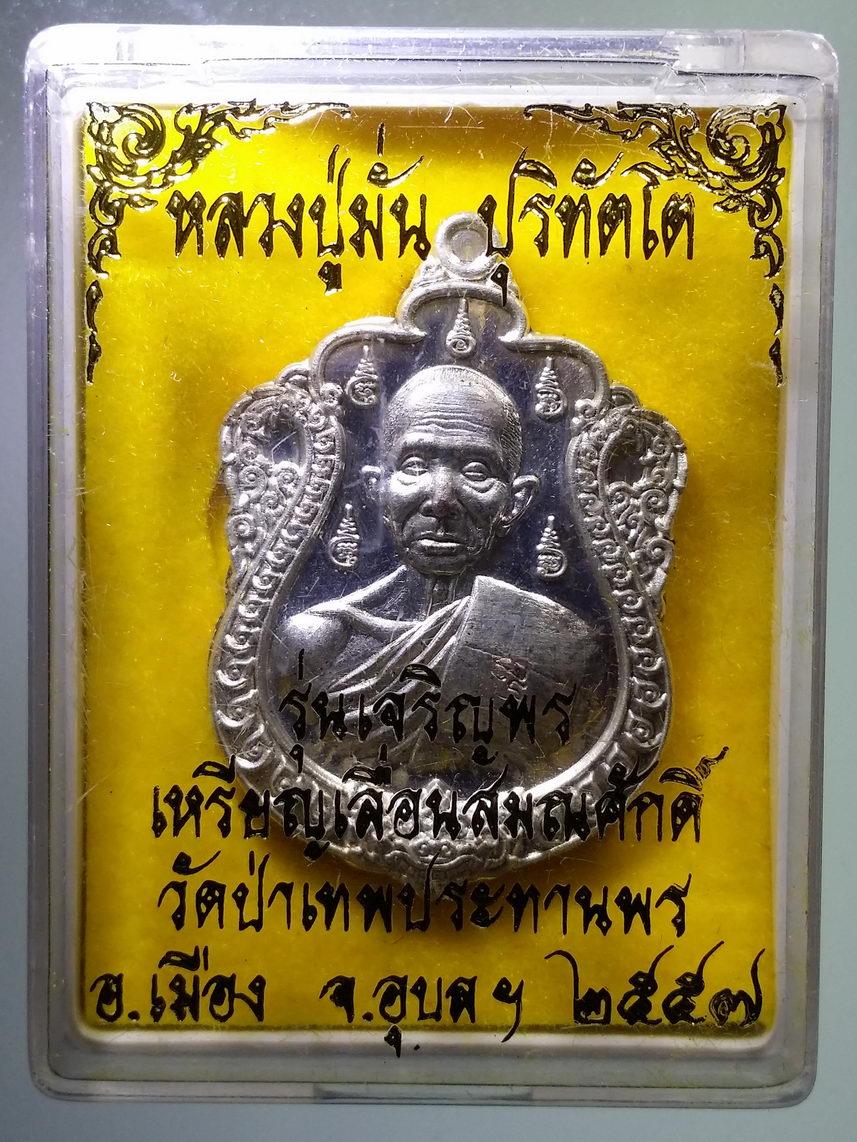 หลวงปู่มั่น ปุริทัตโต
รุ่นเจริญพร
เหรียญเลื่อนสมณศักดิ์
วัดป่าเทพประทานพร
อ.เมือง จ.อุบลฯ ๒๕๕๗